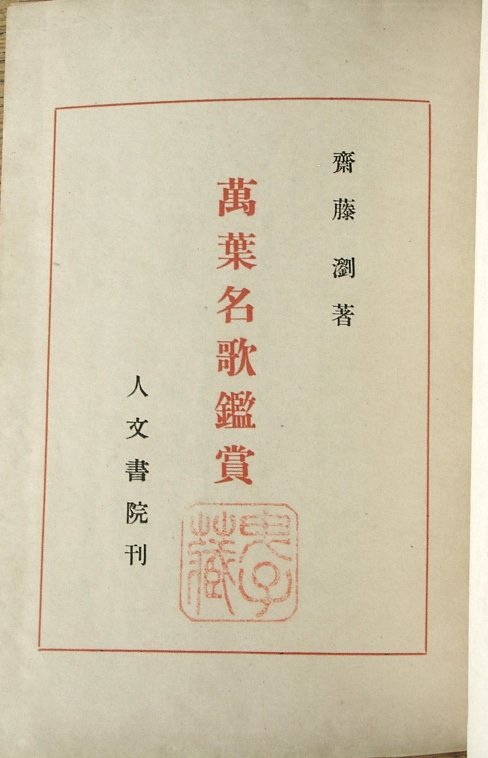 齋藤瀏著
萬葉名歌鑑賞
人文書院刊